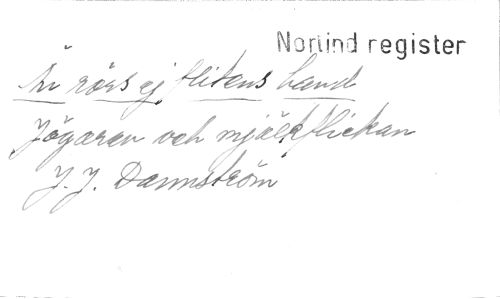 Norlind register
Än rörs ej flitens hand
Jägaren och mjölkflickan
J. J. Dannström